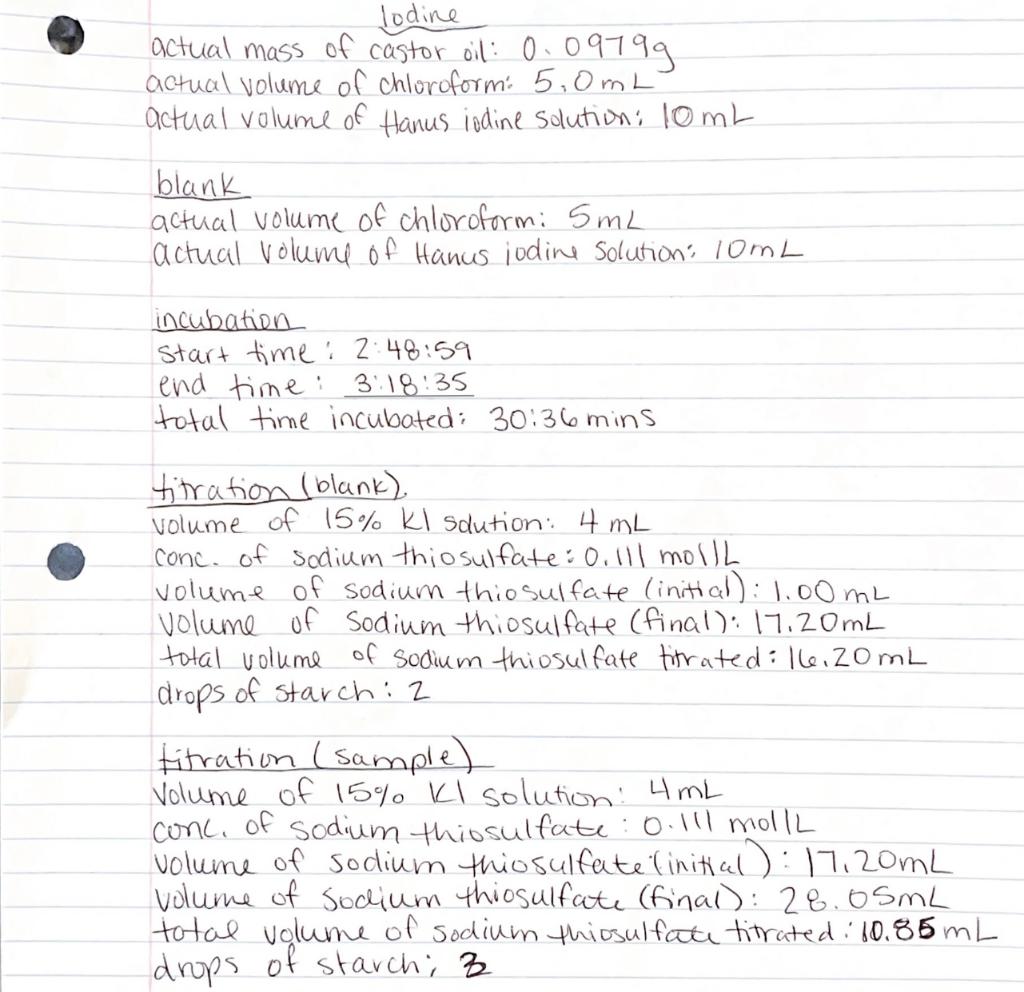 Iodine
actual mass of castor oil: 0.0979g
actual volume of chloroform: 5.0mL
actual volume of Hanus iodine solution: 10mL
blank
actual volume of chloroform: 5mL
actual volume of Hanus iodine solution: 10mL
incubation
start time: 2:48:59
end time: 3:18:35
total time incubated: 30:36 mins
titration (blank)
volume of 15% KI solution: 4 mL
conc. of sodium thiosulfate: 0.111 mol/L
volume of sodium thiosulfate (initial): 1.00mL
volume of sodium thiosulfate (final): 17.20mL
total volume of sodium thiosulfate titrated: 16.20mL
drops of starch: 2
titration (sample)
Volume of 15% KI solution: 4mL
conc. of sodium thiosulfate: 0.111 mol/L
volume of sodium thiosulfate (initial): 17.20mL
volume of sodium thiosulfate (final): 28.05mL
total volume of sodium thiosulfate titrated: 10.85mL
drops of starch: 3